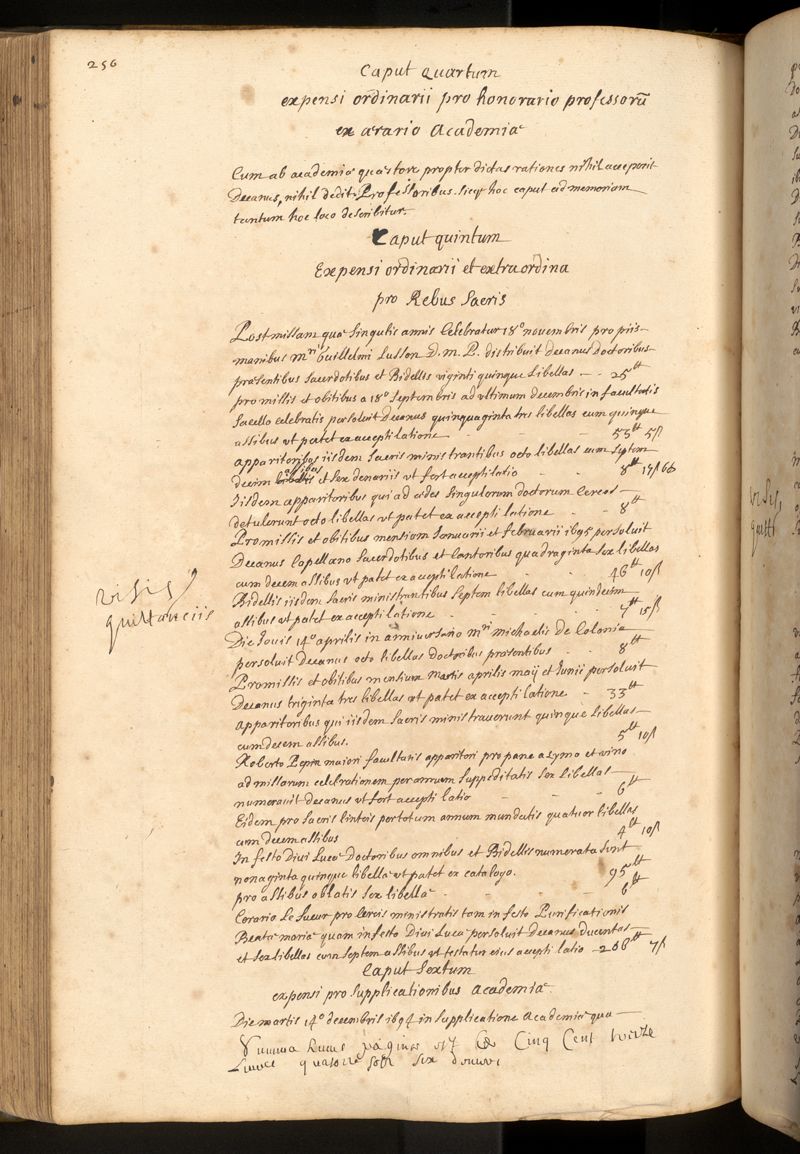 256
Caput Quartum
expensi ordinarii pro honorario professorũ
ex ærario Academiæ
Cum ab academiæ quæstore propter dictas rationes nihil acceperit
Decanus, nihil dedit Professoribus. sicq; hoc caput ad memoriam
tantum hoc loco describitur.
Caput quintum
Expensi ordinarii et extraordina
pro Rebus sacris
Post missam quæ singulis annis celebratur 18° novembris pro piis
manibus mri Guillelmi Lusson D. m. P. distribuit decanus doctoribus
præsentibus sacerdotibus et Bidellis viginti quinque libellas - - 25tt
pro missis et obitibus a 18° septembris ad ultimum decembris in facultatis
sacello celebratis persoluit Decanus quinquaginta tres libellas cum quinque
assibus vt patet ex acceptilatione - - 53tt 5ſ
apparitoribus iisdem sacris ministrantibus octo libellas cum septem
decim assibus et sex denariis vt fert acceptilatio - - 8tt 17ſ 6d
Iisdem apparitoribus qui ad ædes singulorum doctorum cereos
detulerunt octo libellas vt patet ex accepti latione - - 8tt
Pro missis et obitibus mensium Ianuarii et februarii 1695 persoluit
Decanus Capellano sacerdotibus et Cantoribus quadraginta sex libellas
cum decem assibus vt patet ex acceptilatione - - 46tt 10ſ
Bidellis iisdem sacris ministrantibus septem libellas cum quindecim
assibus vt patet ex accepti latione - - - - 7tt 15ſ
visis
quittanciis
Die Iouis 14° aprilis in anniuersario mri michaelis De Colonia
persoluit decanus octo libellas doctoribus præsentibus - - 8tt
Pro missis et obitibus mensium martis aprilis maij et Iunii persoluit
Decanus triginta tres libellas vt patet ex accepti latione - 33tt
apparitoribus qui iisdem sacris ministrauerunt quinque libellas
cum decem assibus. 5tt 10ſ
Roberto Pepin maiori facultatis apparitori pro pane azymo et vino
ad missarum celebrationem per annum suppeditatis sex libellas
numerauit decanus vt fert accepti latio - - - 6tt
Eidem pro sacris linteis per totum annum mundatis quatuor libellas
cum decem assibus 4tt 10ſ
In festo Divi Lucæ Doctoribus omnibus et Bidellis numeratæ sunt
nonaginta quinque libellæ vt patet ex catalogo. 95tt
pro assibus oblatis sex libellæ - - - - 6tt
Cerario Le Sueur pro cereis ministratis tam in festo Purificationis
Beatæ mariæ quam in festo Divi Lucæ persoluit decanus ducentas
et sex libellas cum septem assibus vt testatur eius accepti latio - 206tt 7ſ
Caput sextum
expensi pro supplicationibus Academiæ.
Die martis 14° decembris 1694 in supplicatione Academiæ quæ
Summa huius paginæ Cinq Cent
quatorze sols six deniers